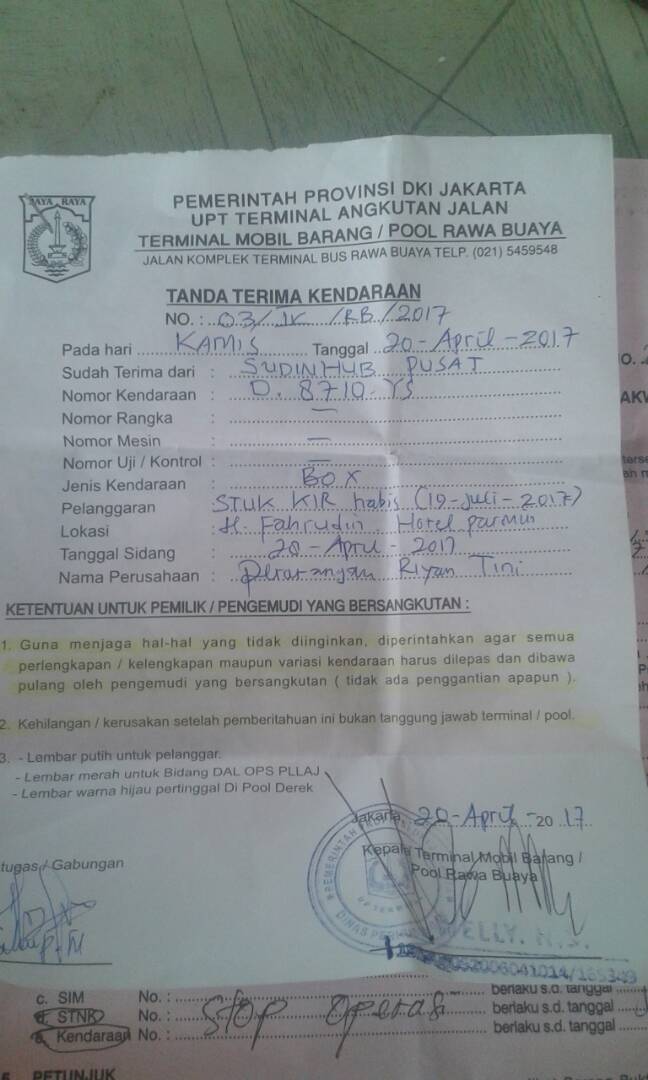 JAYA RAYA
PEMERINTAH PROVINSI DKI JAKARTA
UPT TERMINAL ANGKUTAN JALAN
TERMINAL MOBIL BARANG / POOL RAWA BUAYA
JALAN KOMPLEK TERMINAL BUS RAWA BUAYA TELP. (021) 5459548
TANDA TERIMA KENDARAAN
NO. : 03/JK/RB/2017
Pada hari KAMIS Tanggal 20-April-2017
Sudah Terima dari : SUDINHUB PUSAT
Nomor Kendaraan : D. 8710-YS
Nomor Rangka : —
Nomor Mesin : —
Nomor Uji / Kontrol : —
Jenis Kendaraan : BOX
Pelanggaran STUK KIR habis (19-Juli-2017)
Lokasi : Jl. Fahrudin. Hotel parmin
Tanggal Sidang : 20-April-2017
Nama Perusahaan : Perorangan Riyan Tini
KETENTUAN UNTUK PEMILIK / PENGEMUDI YANG BERSANGKUTAN :
1. Guna menjaga hal-hal yang tidak diinginkan, diperintahkan agar semua
perlengkapan / kelengkapan maupun variasi kendaraan harus dilepas dan dibawa
pulang oleh pengemudi yang bersangkutan ( tidak ada penggantian apapun ).
2. Kehilangan / kerusakan setelah pemberitahuan ini bukan tanggung jawab terminal / pool.
3. - Lembar putih untuk pelanggar.
- Lembar merah untuk Bidang DAL OPS PLLAJ
- Lembar warna hijau pertinggal Di Pool Derek
Jakarta, 20-April-2017
Kepala Terminal Mobil Barang /
Pool Rawa Buaya
tugas / Gabungan
c. SIM No. : berlaku s.d. tanggal
d. STNK No. : Stop Operasi berlaku s.d. tanggal
e. Kendaraan No. : berlaku s.d. tanggal
PETUNJUK